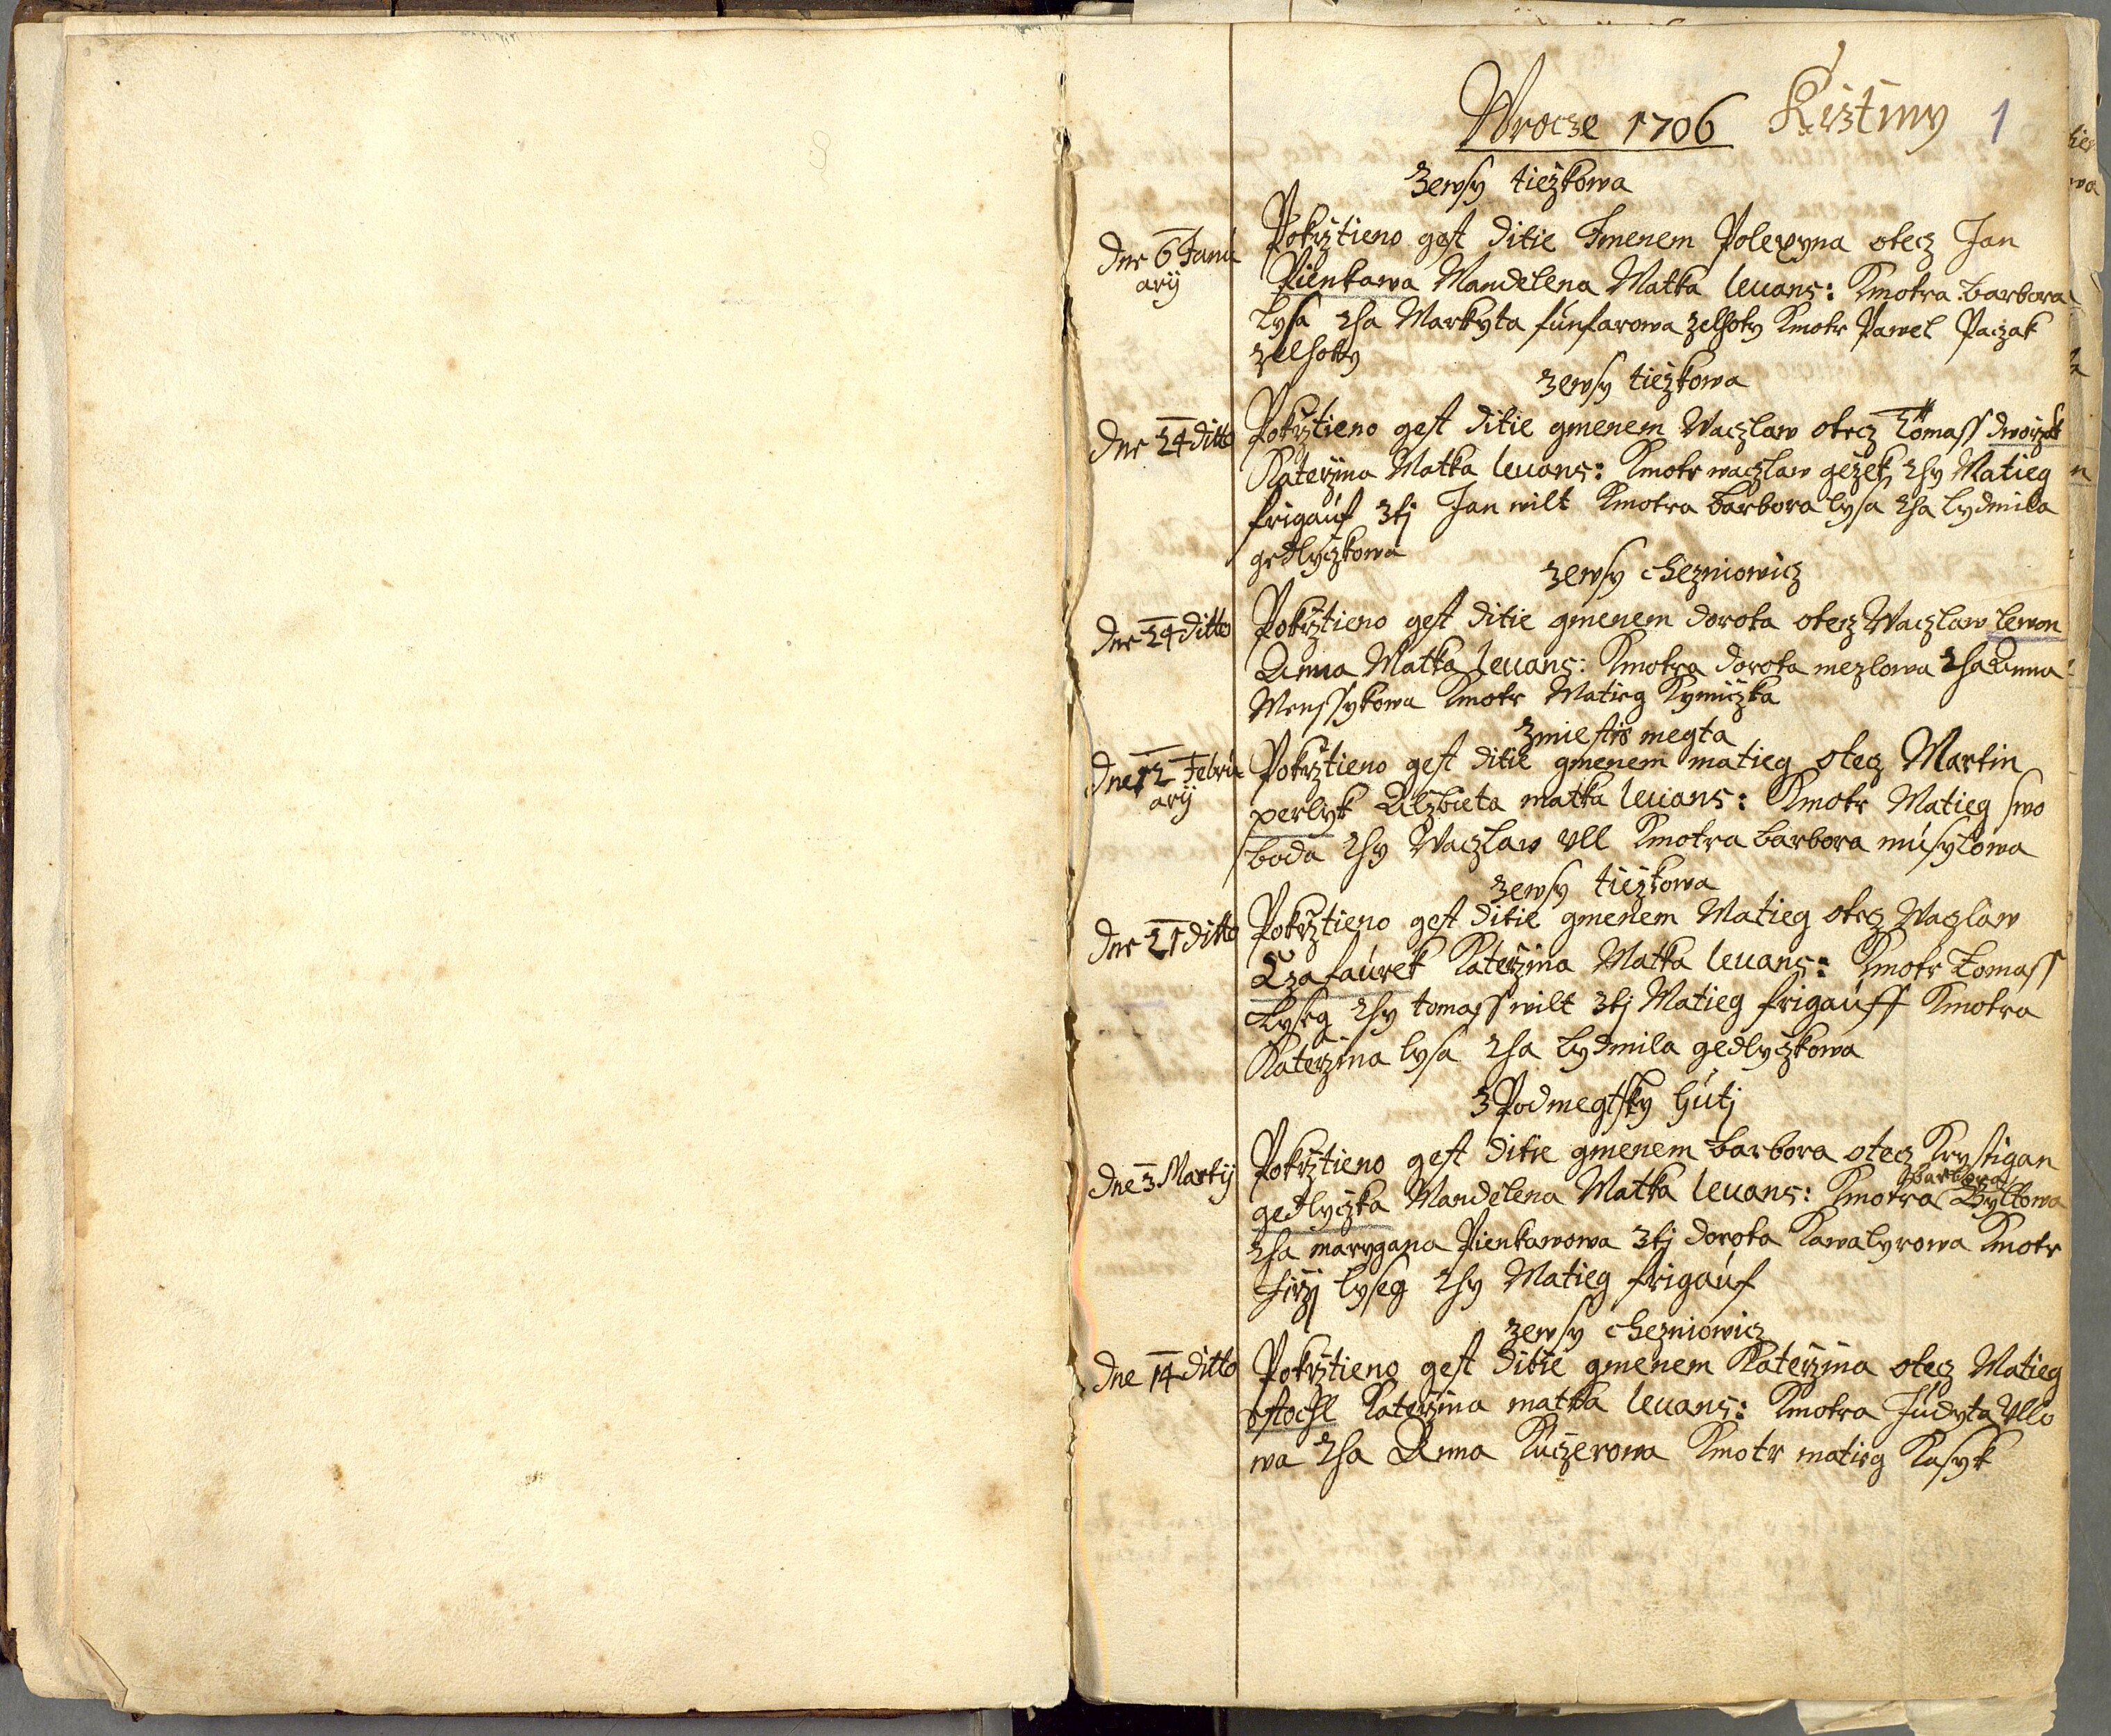 Wrocze 1706 Krztiny 1
zewsy tiežkowa
Dne 6 Janu
arij
Pokrztieno gest ditie Jmenem Polexyna otecz Jan
Pienkawa Mandelena Matka levans: Kmotra barbora
lysa 2ha Markyta funfarowa zelhoty Kmotr Pawel Paczak
zelhotty
zewsy tiežkowa
Dne 24 ditto
Pokrztieno gest ditie gmenem Waczlaw otecz Tomass dworzak
Katerzina Matka levans: Kmotr waczlaw gežek 2hy Matieg
frigauf 3tj Jan wilt Kmotra barbora lysa 2ha lydmila
gedlyczkowa
zewsy chezniowicz
Dne 24 ditto
Pokrztieno gest ditie gmenem dorota otecz Waczlaw lewon
Anna Matka levans: Kmotra dorota mezlowa 2ha Anna
Menssykowa Kmotr Matieg Kymiczka
zmiestis megta
Dne 12 Febru
arij
Pokrztieno gest ditie gmenem matieg otecz Martin
perlyk Alzbieta matka levans: Kmotr Matieg swo
boda 2hy Waczlaw Vll Kmotra barbora musylowa
zewsy tiežkowa
Dne 21 ditto
Pokrztieno gest ditie gmenem Matieg otecz Waczlaw
Czafaurek Katerzina Matka levans: Kmotr Tomass
Lyseg 2hy tomass wilt 3tj Matieg frigauff Kmotra
Katerzina lysa 2ha lydmila gedlyczkowa
z Podmegtsky huti
Dne 3 Martij
Pokrztieno gest ditie gmenem barbora otecz Krystigan
gedlyczka Mandelena Matka levans: Kmotra barbora Byltowa
2ha marygana Pienkawowa 3tj dorota Kawalyrowa Kmotr
Jirzj lyseg 2hy Matieg frigauf
zewsy chezniowicz
Dne 14 ditto
Pokrztieno gest ditie gmenem Katerzina otecz Matieg
stochl Katerzina matka levans: Kmotra Judyta Vllo
wa 2ha Anna Kuczerowa Kmotr matieg Kasyk